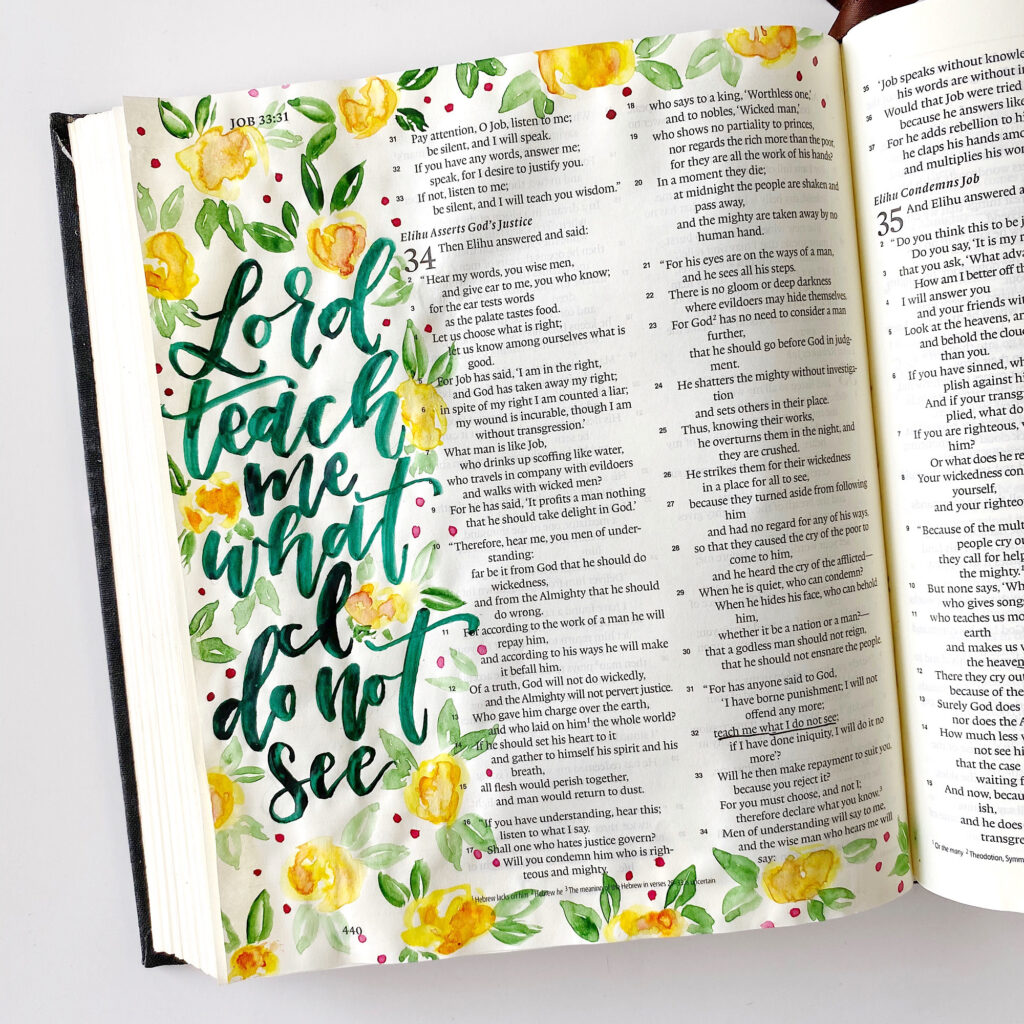 JOB 33:31
Lord
teach
me
what
I
do not
see
31 Pay attention, O Job, listen to me;
be silent, and I will speak.
32 If you have any words, answer me;
speak, for I desire to justify you.
33 If not, listen to me;
be silent, and I will teach you wisdom.”
Elihu Asserts God’s Justice
34 Then Elihu answered and said:
2 “Hear my words, you wise men,
and give ear to me, you who know;
3 for the ear tests words
as the palate tastes food.
4 Let us choose what is right;
let us know among ourselves what is
good.
For Job has said, ‘I am in the right,
and God has taken away my right;
6 in spite of my right I am counted a liar;
my wound is incurable, though I am
without transgression.’
7 What man is like Job,
who drinks up scoffing like water,
8 who travels in company with evildoers
and walks with wicked men?
9 For he has said, ‘It profits a man nothing
that he should take delight in God.’
10 “Therefore, hear me, you men of under-
standing:
far be it from God that he should do
wickedness,
and from the Almighty that he should
do wrong.
11 For according to the work of a man he will
repay him,
and according to his ways he will make
it befall him.
12 Of a truth, God will not do wickedly,
and the Almighty will not pervert justice.
13 Who gave him charge over the earth,
and who laid on him¹ the whole world?
14 If he should set his heart to it
and gather to himself his spirit and his
breath,
15 all flesh would perish together,
and man would return to dust.
16 “If you have understanding, hear this;
listen to what I say.
17 Shall one who hates justice govern?
Will you condemn him who is righ-
teous and mighty,
18 who says to a king, ‘Worthless one,’
and to nobles, ‘Wicked man,’
19 who shows no partiality to princes,
nor regards the rich more than the poor,
for they are all the work of his hands?
20 In a moment they die;
at midnight the people are shaken and
pass away,
and the mighty are taken away by no
human hand.
21 “For his eyes are on the ways of a man,
and he sees all his steps.
22 There is no gloom or deep darkness
where evildoers may hide themselves.
23 For God² has no need to consider a man
further,
that he should go before God in judg-
ment.
24 He shatters the mighty without investiga-
tion
and sets others in their place.
25 Thus, knowing their works,
he overturns them in the night, and
they are crushed.
26 He strikes them for their wickedness
in a place for all to see,
27 because they turned aside from following
him
and had no regard for any of his ways,
28 so that they caused the cry of the poor to
come to him,
and he heard the cry of the afflicted—
29 When he is quiet, who can condemn?
When he hides his face, who can behold
him,
whether it be a nation or a man?—
30 that a godless man should not reign,
that he should not ensnare the people.
31 “For has anyone said to God,
‘I have borne punishment; I will not
offend any more;
32 teach me what I do not see;
if I have done iniquity, I will do it no
more’?
33 Will he then make repayment to suit you,
because you reject it?
For you must choose, and not I;
therefore declare what you know.³
34 Men of understanding will say to me,
and the wise man who hears me will
say:
¹ Hebrew lacks on him ² Hebrew he ³ The meaning of the Hebrew in verses 29–33 is uncertain
440
35 ‘Job speaks without knowle
his words are without in
36 Would that Job were tried
because he answers like
37 For he adds rebellion to hi
he claps his hands amo
and multiplies his wor
Elihu Condemns Job
35 And Elihu answered a
2 “Do you think this to be j
Do you say, ‘It is my r
3 that you ask, ‘What adva
How am I better off th
4 I will answer you
and your friends with
5 Look at the heavens, an
and behold the clou
than you.
6 If you have sinned, wh
plish against hi
And if your transg
plied, what do
7 If you are righteous, w
him?
Or what does he re
8 Your wickedness con
yourself,
and your righteo
9 “Because of the mult
people cry ou
they call for help
the mighty.
10 But none says, ‘Wh
who gives song
11 who teaches us mo
earth
and makes us w
the heaven
12 There they cry out
because of the
13 Surely God does
nor does the A
14 How much less w
not see him
that the case
waiting f
15 And now, becaus
ish,
and he does
transgre
¹ Or the many ² Theodotion, Symm